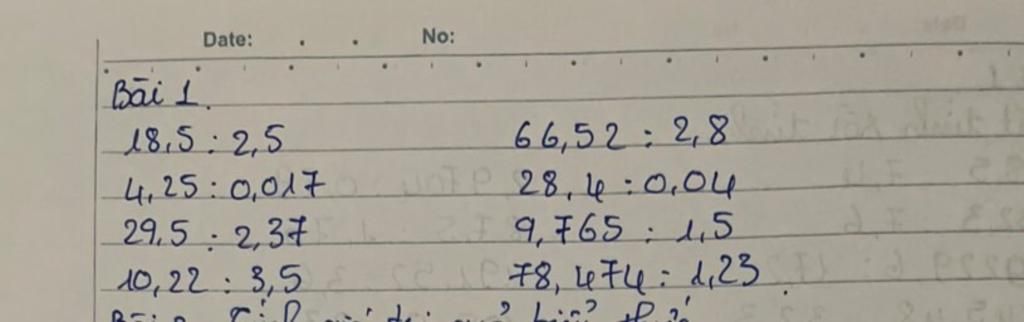 Date: . . No:
Bài 1.
18,5 : 2,5 66,52 : 2,8
4,25 : 0,017 28,4 : 0,04
29,5 : 2,37 9,765 : 1,5
10,22 : 3,5 78,474 : 1,23.